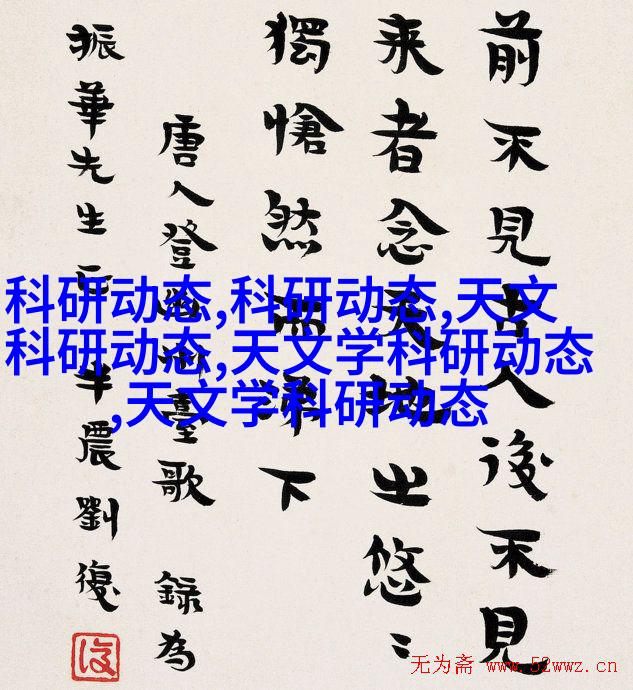 前不見古人後不見
来者念天地之悠〻
獨愴然而涕下
唐人登幽州臺歌 錄為
振華先生正 半農劉復
科研动态,科研动态,天文
科研动态,天文学科研动态
,天文学科研动态
无为斋 www.52wwz.cn